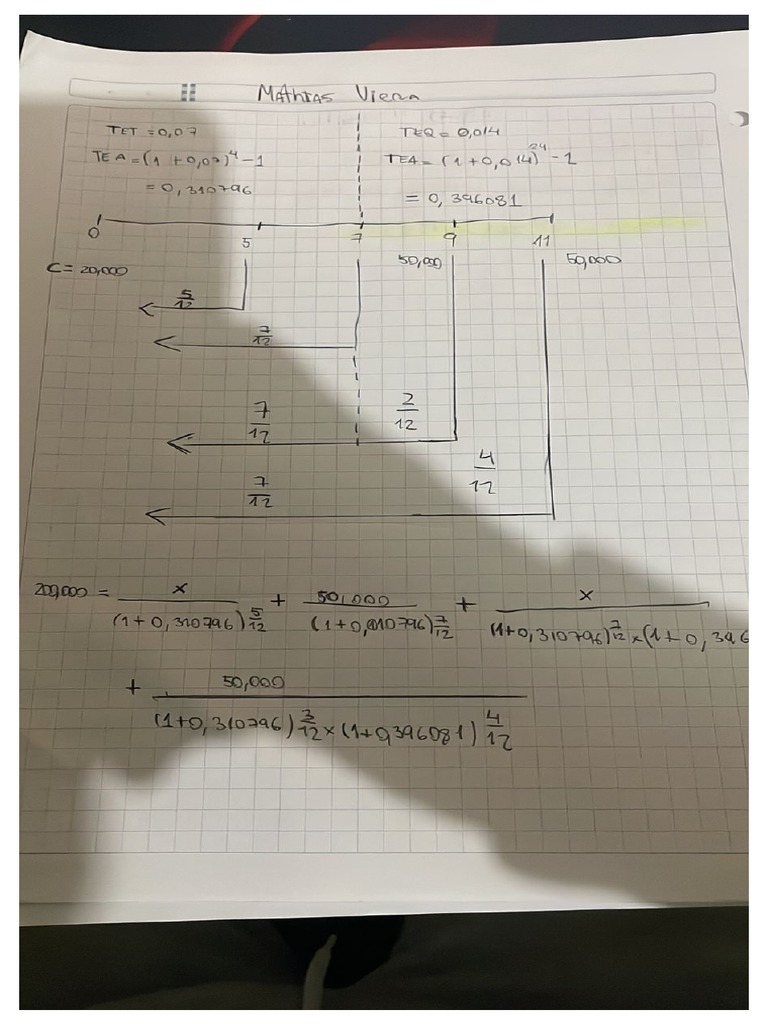 Mathias Viera
TET = 0,07 TEQ = 0,014
TEA = (1 + 0,07)^4 - 1 TEA = (1 + 0,014)^24 - 1
= 0,310796 = 0,396081
0 5 7 9 11
C = 20,000 50,000 50,000
5/12
7/12
7/12 2/12
7/12 4/12
200,000 = x/(1+0,310796)^5/12 + 50,000/(1+0,010796)^7/12 + x/(1+0,310796)^7/12 x (1+0,396
+ 50,000/(1+0,310796)^7/12 x (1+0,396081)^4/12